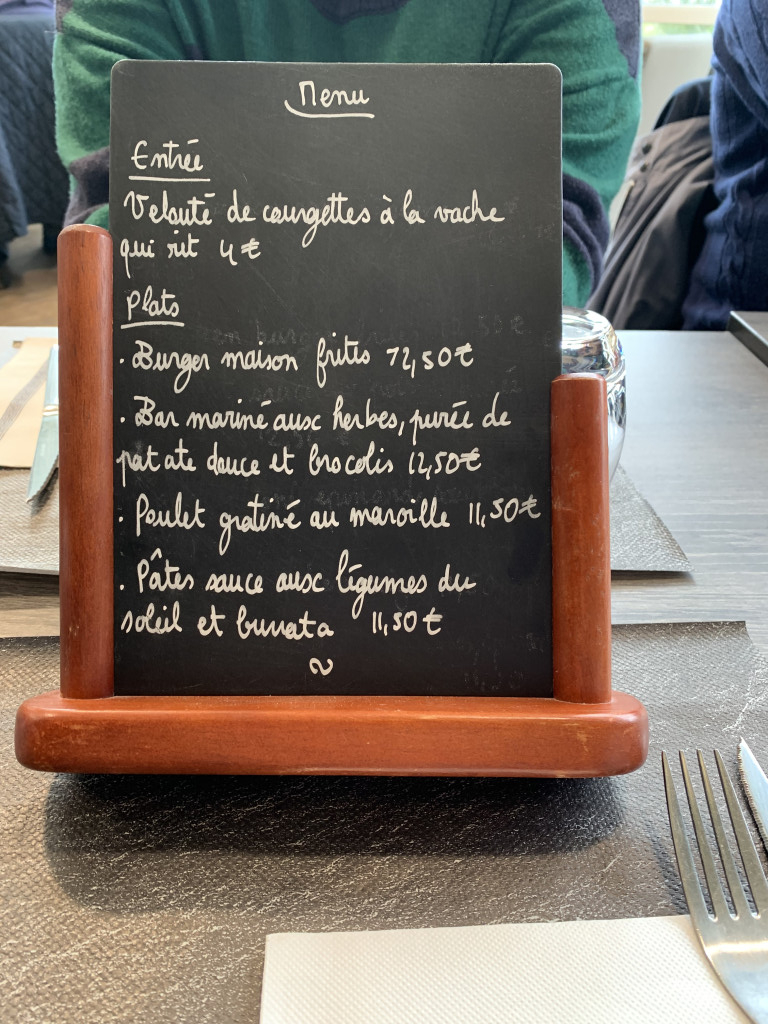 Menu
Entrée
Velouté de courgettes à la vache
qui rit 4€
Plats
. Burger maison frites 12,50€
. Bar mariné aux herbes, purée de
patate douce et brocolis 12,50€
. Poulet gratiné au maroille 11,50€
. Pâtes sauce aux légumes du
soleil et burrata 11,50€